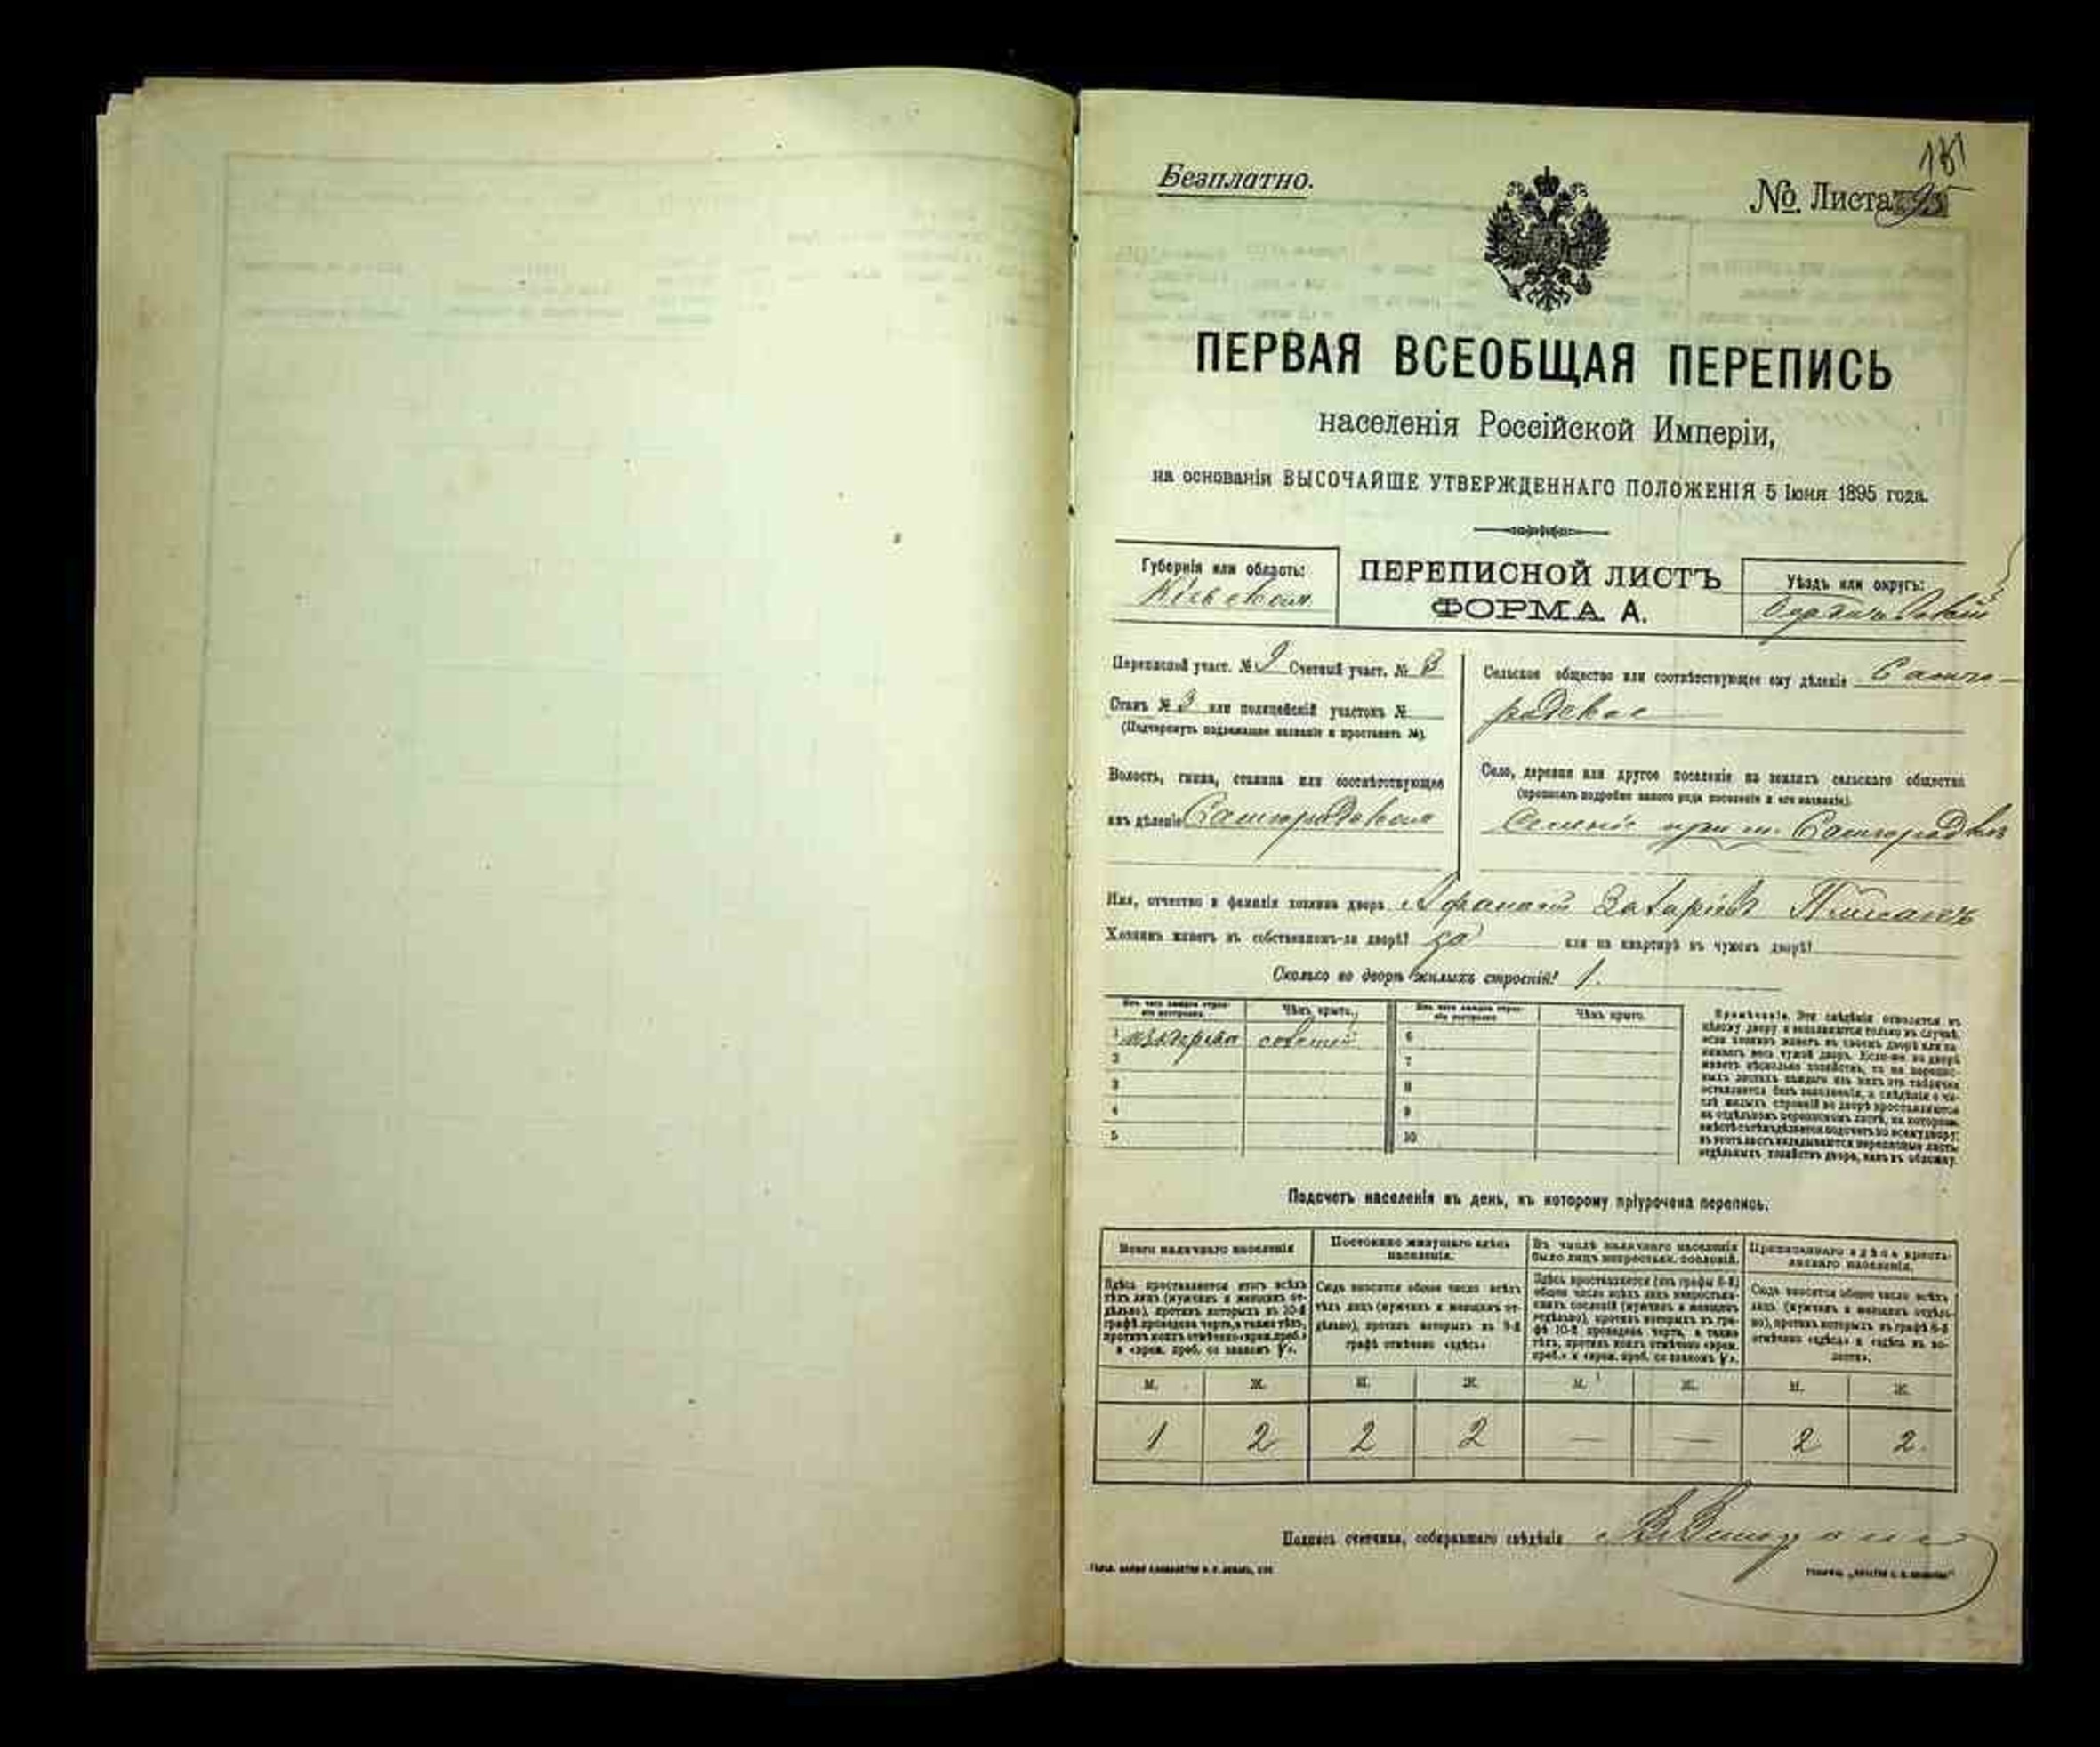 Безплатно.
№ Листа 95
181
ПЕРВАЯ ВСЕОБЩАЯ ПЕРЕПИСЬ
населенія Россійской Имперіи,
на основаніи ВЫСОЧАЙШЕ УТВЕРЖДЕННАГО ПОЛОЖЕНІЯ 5 Іюня 1895 года.
Губернія или область:
Кіевская
ПЕРЕПИСНОЙ ЛИСТЪ
ФОРМА А.
Уѣздъ или округъ:
Бердичевскій
Переписной участ. № 9 Счетный участ. № 8
Станъ № 3 или полицейскій участокъ №
(Подчеркнуть подлежащее названіе и проставить №).
Волость, гмина, станица или соотвѣтствующее
имъ дѣленіе Самгородская
Сельское общество или соотвѣтствующее ему дѣленіе Самго-
родское
Село, деревня или другое поселеніе на земляхъ сельскаго общества
(прописать подробно какого рода поселеніе и его названіе).
Селеніе при м. Самгородкѣ
Имя, отчество и фамилія хозяина двора Афанасій Захаріевъ
Хозяинъ живетъ въ собственномъ-ли дворѣ? да или на квартирѣ въ чужомъ дворѣ?
Сколько во дворѣ жилыхъ строеній? 1.
Изъ чего каждое строеніе построено. Чѣмъ крыто. Изъ чего каждое строеніе построено. Чѣмъ крыто.
1 изъ дерева соломой 6
2 7
3 8
4 9
5 10
Примѣчаніе. Эти свѣдѣнія относятся къ
цѣлому двору и заполняются только въ случаѣ,
если хозяинъ живетъ въ своемъ дворѣ или за-
нимаетъ весь чужой дворъ. Если-же во дворѣ
живетъ нѣсколько хозяйствъ, то на перепис-
ныхъ листахъ каждаго изъ нихъ эта табличка
оставляется безъ заполненія, а свѣдѣнія о чи-
слѣ жилыхъ строеній во дворѣ проставляются
на отдѣльномъ переписномъ листѣ, на которомъ
вмѣстѣ съ тѣмъ дѣлается подсчетъ по всему двору;
въ этотъ листъ вкладываются переписные листы
отдѣльныхъ хозяйствъ двора, какъ въ обложку.
Подсчетъ населенія въ день, къ которому пріурочена перепись.
Всего наличнаго населенія
Здѣсь проставляется итогъ всѣхъ
тѣхъ лицъ (мужчинъ и женщинъ от-
дѣльно), противъ которыхъ въ 10-й
графѣ проведена черта, а также тѣхъ,
противъ коихъ отмѣчено «врем. преб.»
и «врем. преб. со знакомъ V».
Постоянно живущаго здѣсь
населенія.
Сюда вносится общее число всѣхъ
тѣхъ лицъ (мужчинъ и женщинъ от-
дѣльно), противъ которыхъ въ 9-й
графѣ отмѣчено «здѣсь»
Въ числѣ наличнаго населенія
было лицъ некрестьян. сословій.
Здѣсь проставляется (изъ графы 6-й)
общее число всѣхъ лицъ некрестьян-
скихъ сословій (мужчинъ и женщинъ
отдѣльно), противъ которыхъ въ гра-
фѣ 10-й проведена черта, а также
тѣхъ, противъ коихъ отмѣчено «врем.
преб.» и «врем. преб. со знакомъ V».
Приписаннаго здѣсь кресть-
янскаго населенія.
Сюда вносится общее число всѣхъ
лицъ (мужчинъ и женщинъ отдѣль-
но), противъ которыхъ въ графѣ 8-й
отмѣчено «здѣсь» и «здѣсь въ во-
лости».
М. Ж. М. Ж. М. Ж. М. Ж.
1 2 2 2 — — 2 2
Подпись счетчика, собиравшаго свѣдѣнія